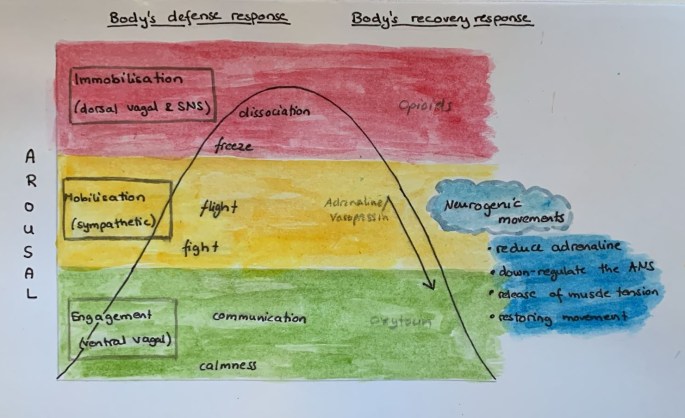 Body's defense response
Body's recovery response
Immobilisation
(dorsal vagal & SNS)
dissociation
Opioids
freeze
AROUSAL
Mobilisation
(sympathetic)
flight
Adrenaline/
Vasopressin
fight
Neurogenic
movements
• reduce adrenaline
• down-regulate the ANS
• release of muscle tension
• restoring movement
Engagement
(ventral vagal)
communication
Oxytocin
calmness